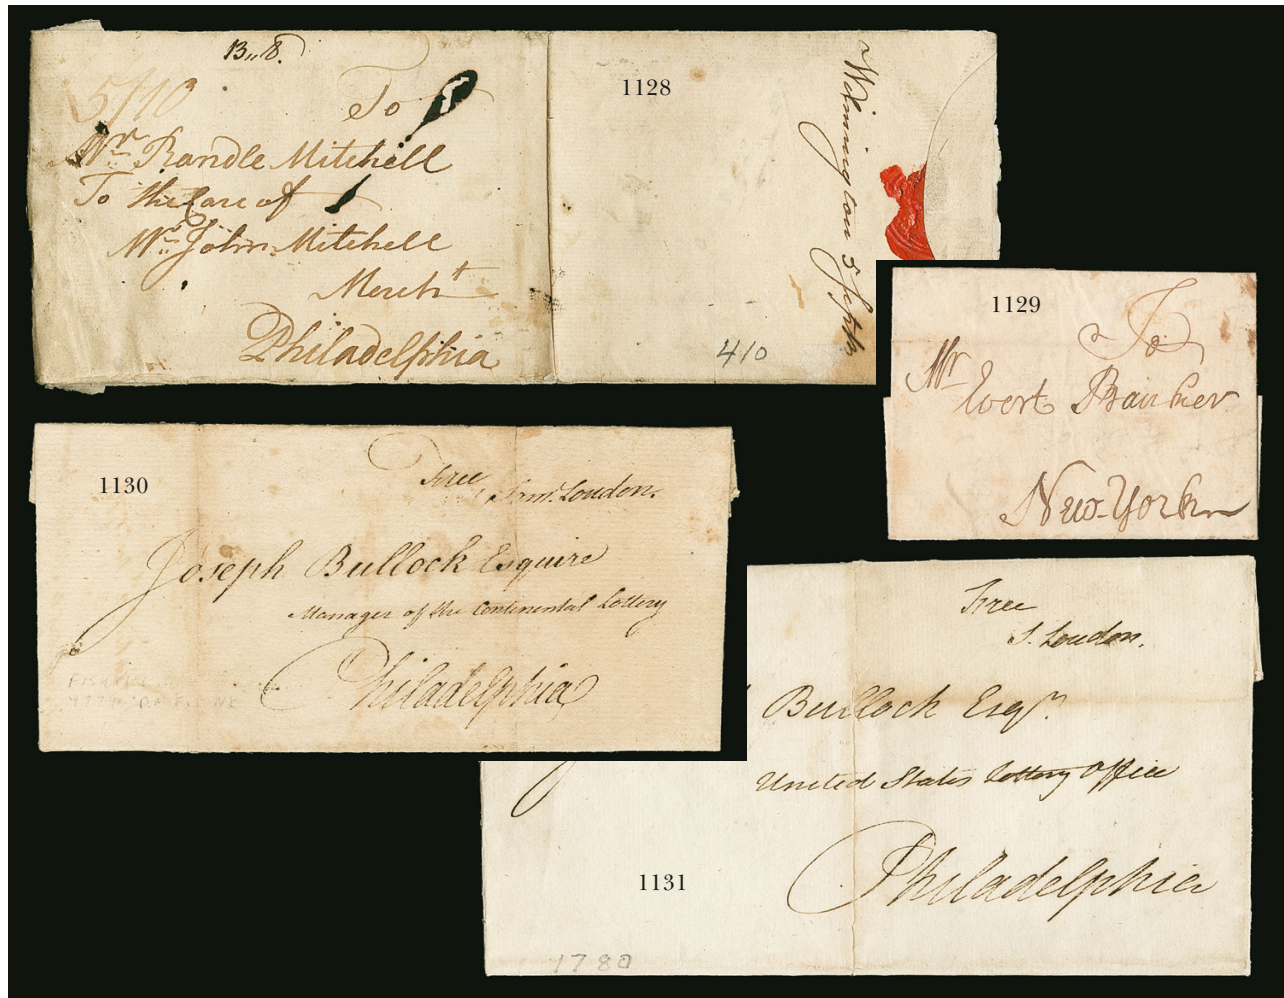 13,,8.
5/10
To
Mr Randle Mitchell
To the Care of
Mr John Mitchell
Mercht
Philadelphia
1128
Wilmington 5 Septr
410
1129
To
Mr Evert Bancker
New-York
1130
Free
Saml. Loudon.
Joseph Bullock Esquire
Manager of the Continental Lottery
Philadelphia
1131
Free
S. Loudon.
Bullock Esqr.
United States Lottery Office
Philadelphia
1780